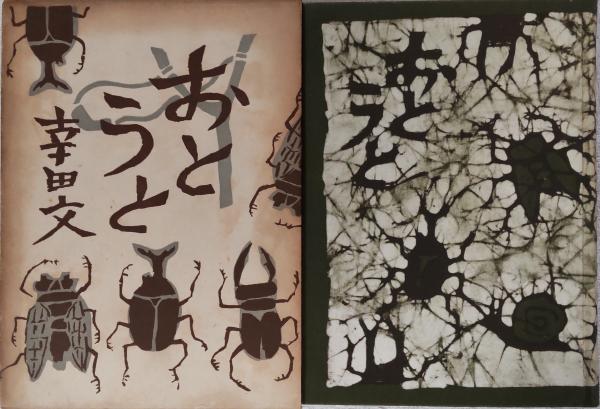 おと
うと
幸田文
おと
うと